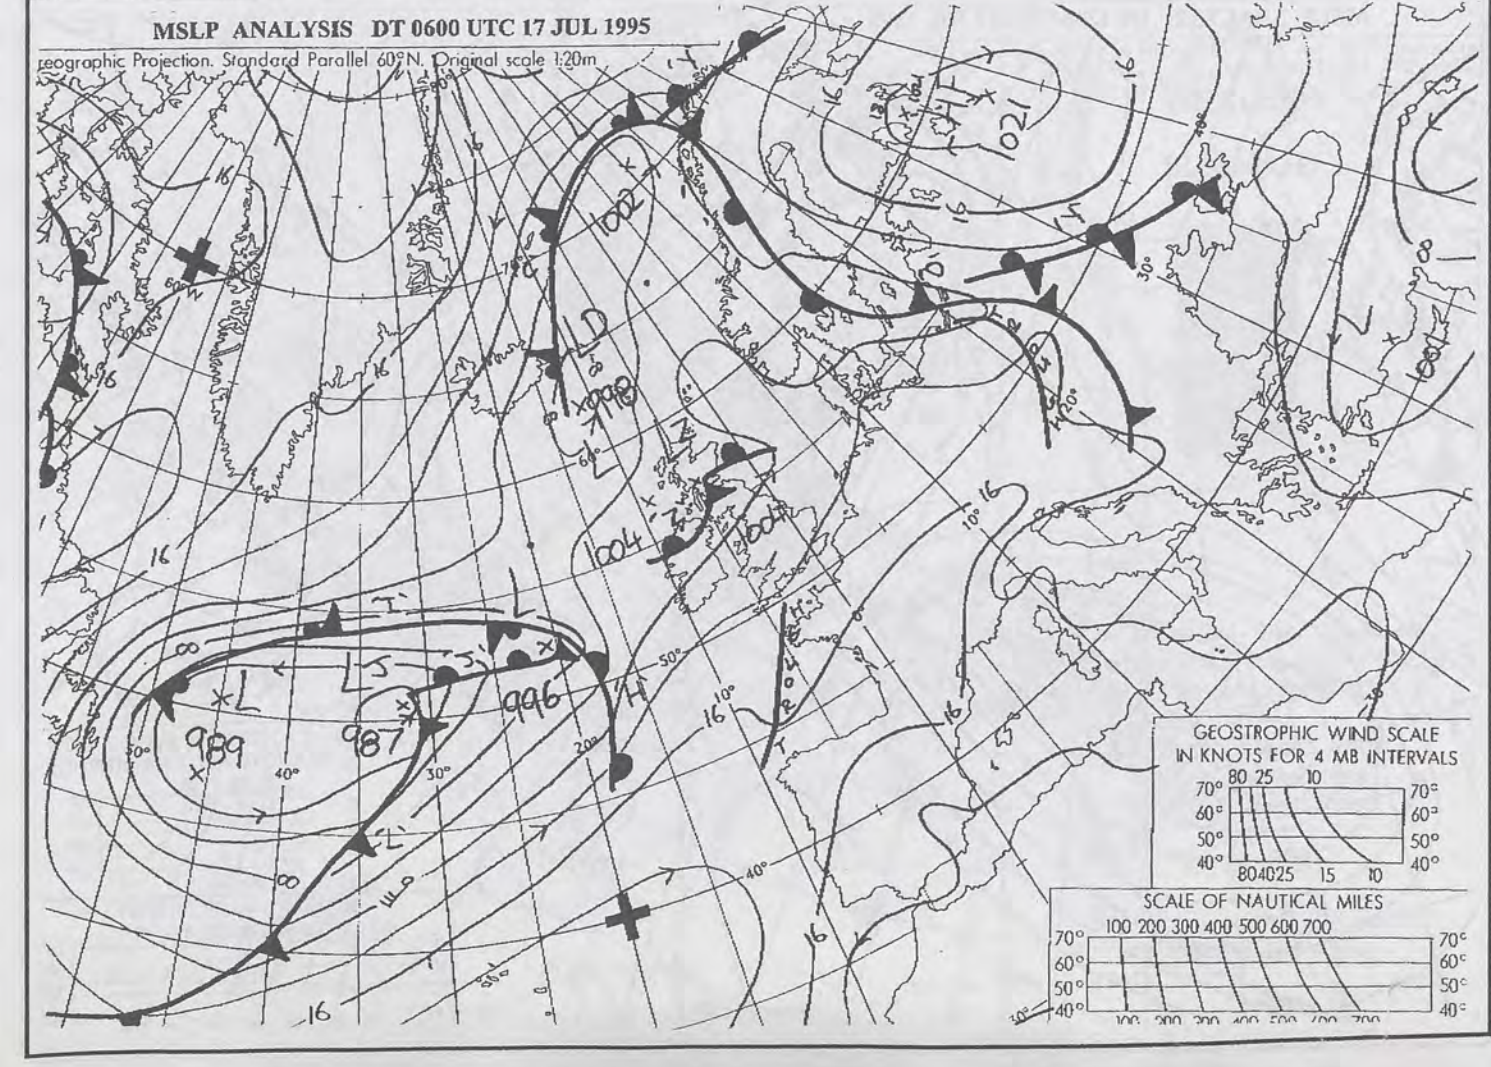 MSLP ANALYSIS DT 0600 UTC 17 JUL 1995
reographic Projection. Standard Parallel 60°N. Original scale 1:20m
16
16
16
H
1021
16
16
16
1002
LD
998
L
16
16
16
8
1001
1004
1004
16
10°
16
20°
30°
60°
8
L
LJ
989
987
996
'H'
50°
10°
16
16
50°
40°
30°
20°
'L'
8
40°
16
16
GEOSTROPHIC WIND SCALE
IN KNOTS FOR 4 MB INTERVALS
80 25 10
70° 70°
60° 60°
50° 50°
40° 40°
804025 15 10
SCALE OF NAUTICAL MILES
100 200 300 400 500 600 700
70° 70°
60° 60°
50° 50°
40° 40°
100 200 300 400 500 600 700
30°